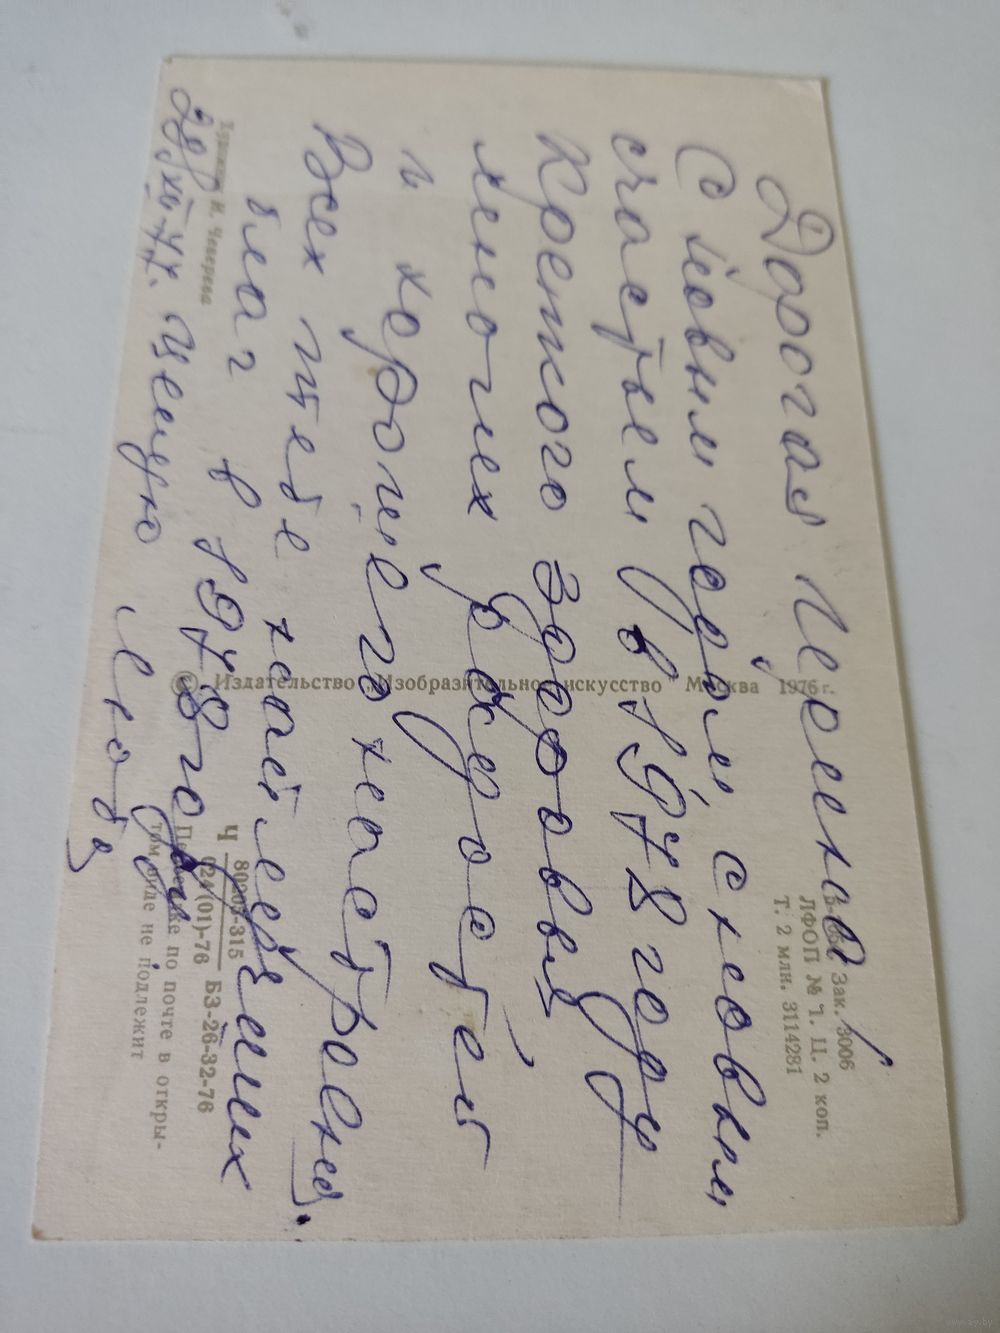 Дорогая Иреночка!
С Новым годом, с новым
счастьем в 1978 году
Крепкого здоровья
многих радостей
и хорошего настроения.
Всех тебе наилучших
благ в 1978 году
28/XII-77. Целую
Художник И. Чеверева
© Издательство „Изобразительное искусство" Москва 1976 г.
Зак. 3006
ЛФОП № 1. Ц. 2 коп.
Т. 2 млн. 3114281
Ч 80205-315
024(01)-76 БЗ-26-32-76
Пересылке по почте в откры-
том виде не подлежит
www.ay.by